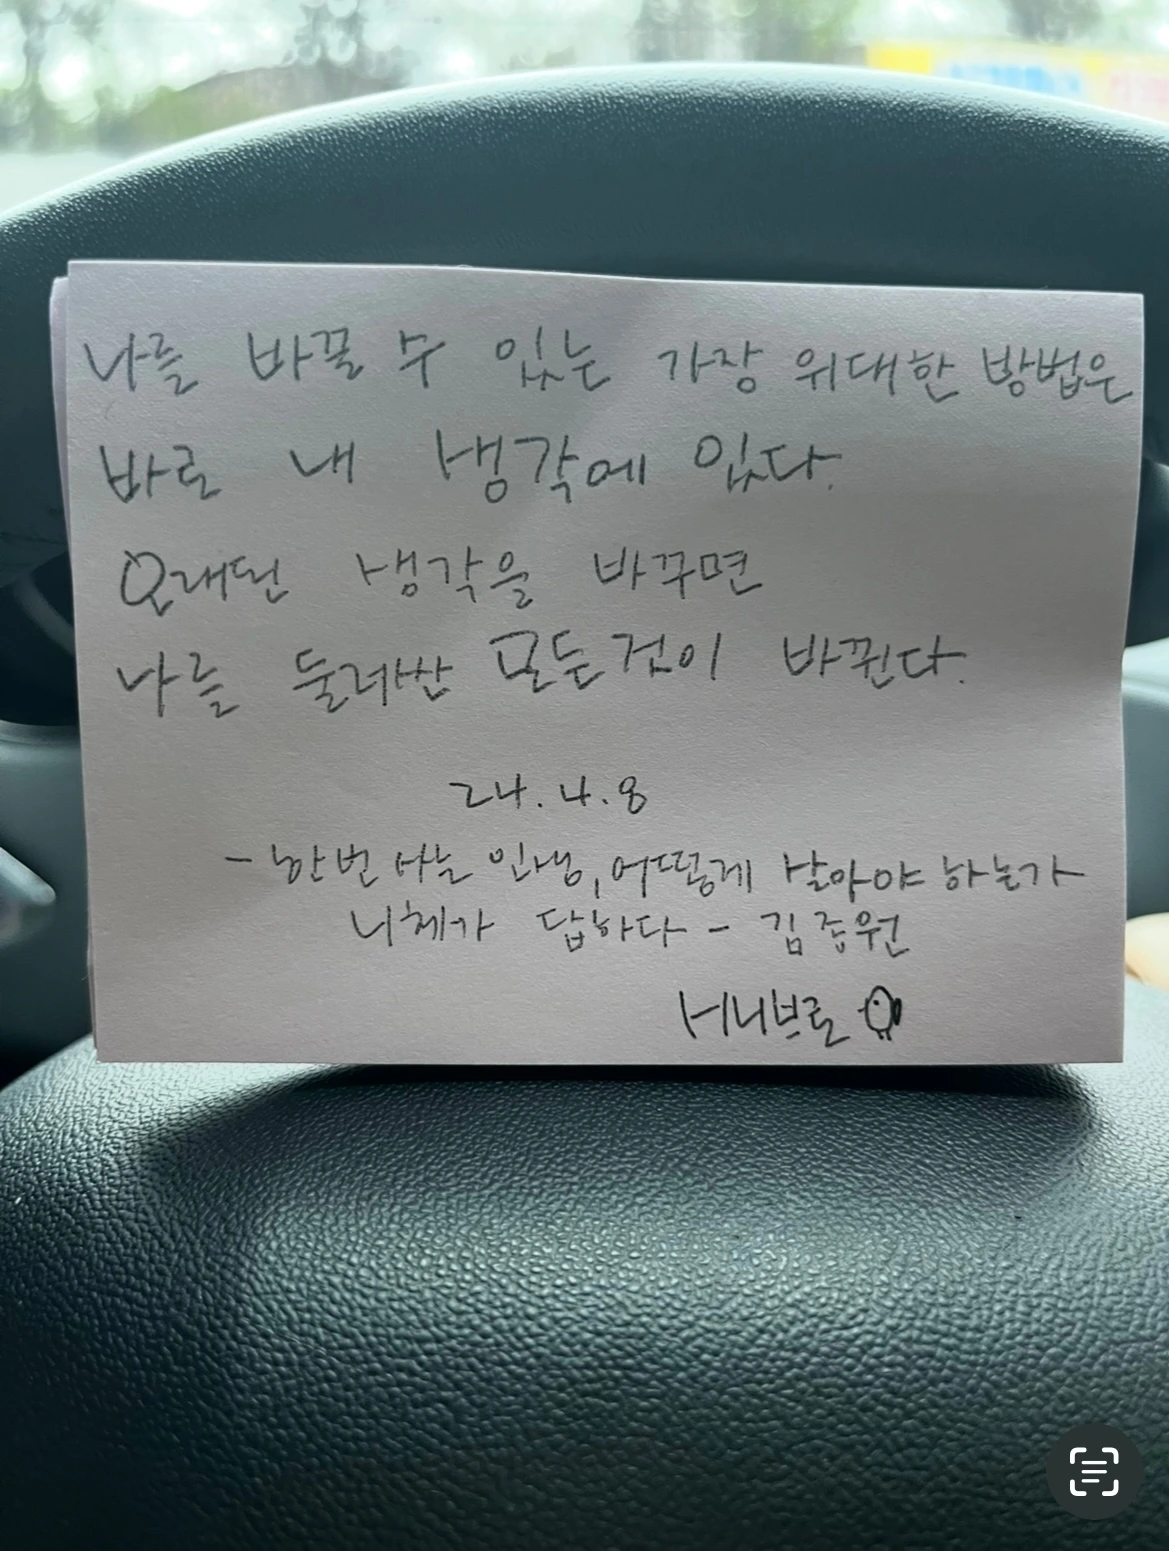 나를 바꿀 수 있는 가장 위대한 방법은
바로 내 생각에 있다.
오래된 생각을 바꾸면
나를 둘러싼 모든것이 바뀐다.
24.4.8
- 한번 사는 인생, 어떻게 살아야 하는가
니체가 답하다 - 김종원
허니브로